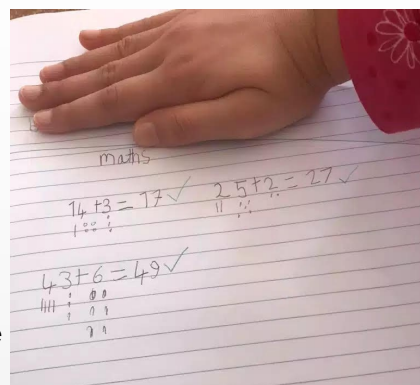 maths
14+3=17✓ 25+2=27✓
43+6=49✓